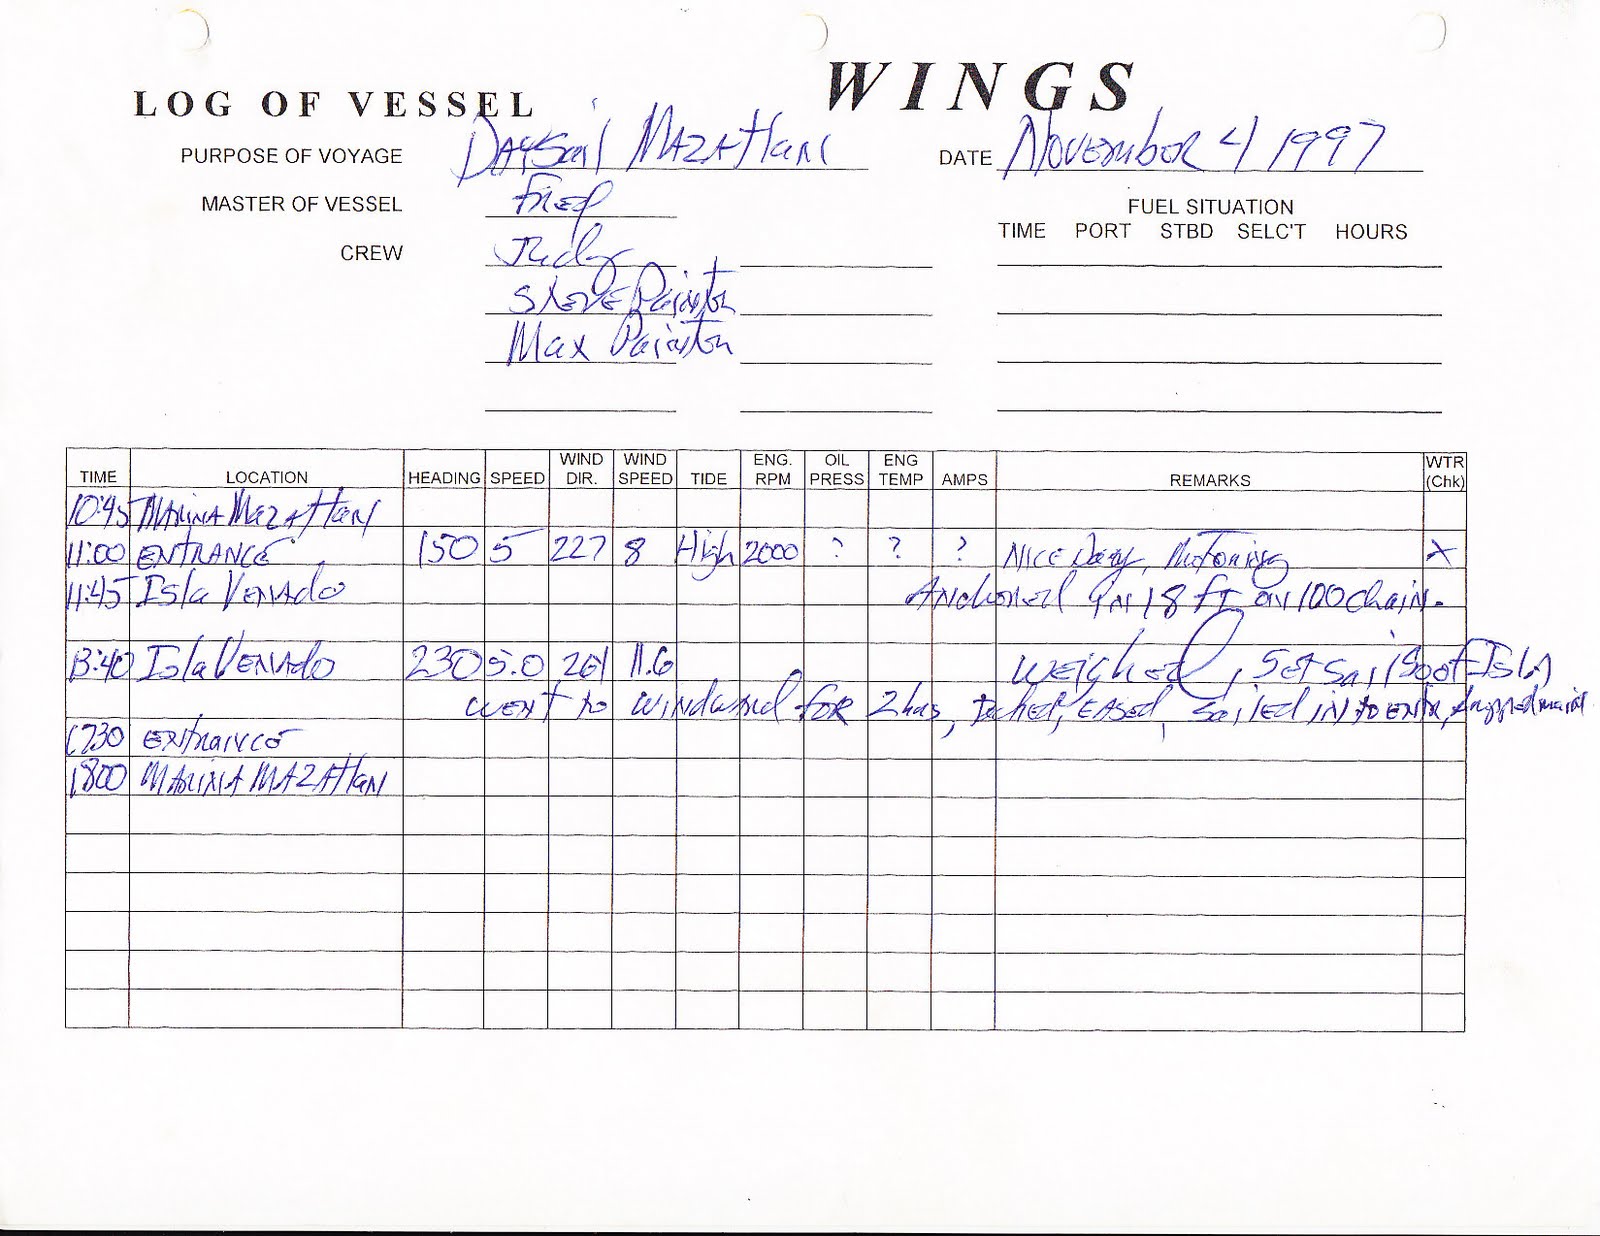 LOG OF VESSEL WINGS
PURPOSE OF VOYAGE Daysail Mazatlan DATE November 4 1997
MASTER OF VESSEL Fred FUEL SITUATION
TIME PORT STBD SELC'T HOURS
CREW Judy
Steve
Max
TIME LOCATION HEADING SPEED WIND DIR. WIND SPEED TIDE ENG. RPM OIL PRESS ENG TEMP AMPS REMARKS WTR (Chk)
10:45 Marina Mazatlan
11:00 Entrance 150 5 227 8 High 2000 ? ? ? Nice Day, Motoring X
11:45 Isla Venado Anchored in 18 ft on 100 chain.
13:40 Isla Venado 230 5.0 261 11.6 Weighed, Set sail
went to windward for 2 hrs, tacked, eased, sailed in to entr,
1730 Entrance
1800 Marina Mazatlan